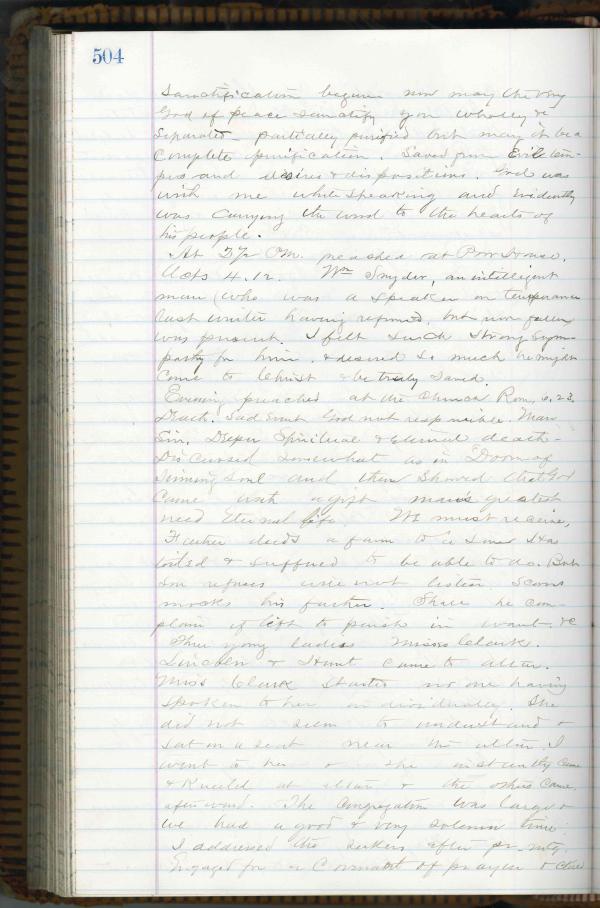 504
Sanctification begun now may the very
God of peace sanctify you wholly &c
Separated partially purified but may it be a
Complete purification. Saved from Evil tem-
pers and desires & dispositions. God was
with me while speaking and evidently
was carrying the word to the hearts of
his people.
At 3½ P.M. preached at Poor House.
Acts 4.12. Wm Snyder, an intelligent
man (who was a speaker on temperance
last winter having reformed, but now fallen
was present. I felt such strong sym-
pathy for him, & desired so much he might
come to Christ & be truly saved.
Evening preached at the Church Rom. 6.23.
Death. Sad Event God not responsible. Man
Sin. Deeper Spiritual & Eternal death-
Discussed somewhat as in "Doom of
Sinning Soul and then showed that God
came with a gift man's greatest
need Eternal life. We must receive,
Father deeds a farm to a son Has
toiled & suffered to be able to do. But
son refuses will not listen. Scorns
mocks his father. Shall he com-
plain if left to perish in want. &c
Three young ladies Misses Clark.
Lincoln & Hunt came to altar.
Miss Clark started no one having
spoken to her individually. She
did not seem to understand &
sat on a seat near the altar. I
went to her & she instantly came
& kneeled at altar & the others came
afterward. The Congregation was large &
we had a good & very solemn time.
I addressed the seekers after pr. mtg.
Engaged for a Covenant of prayer &